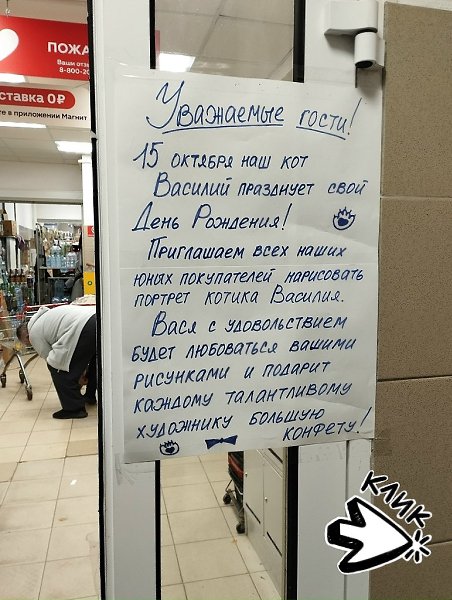 ПОЖА
Ваши отз
8-800-20
ставка 0₽
те в приложении Магнит
Уважаемые гости!
15 октября наш кот
Василий празднует свой
День Рождения!
Приглашаем всех наших
юных покупателей нарисовать
портрет котика Василия.
Вася с удовольствием
будет любоваться вашими
рисунками и подарит
каждому талантливому
художнику большую
конфету!
КЛИК